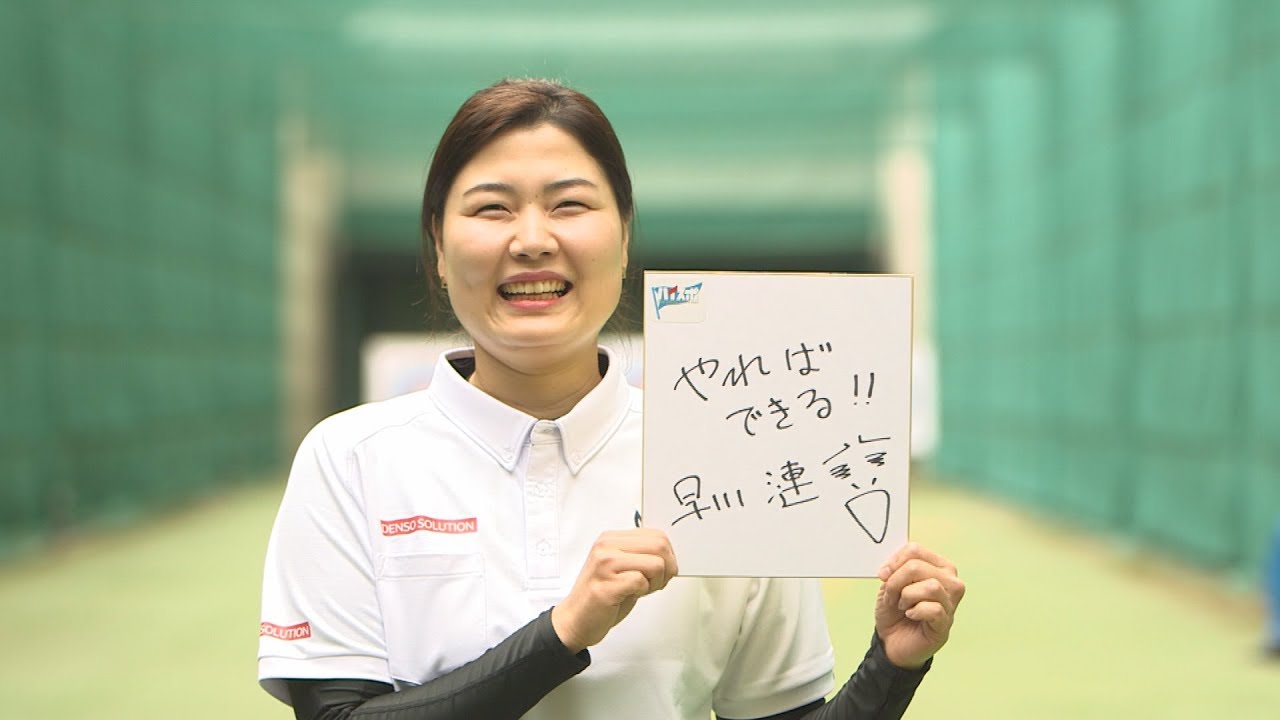 やれば
できる!!
早川 漣
DENSO SOLUTION
SOLUTION